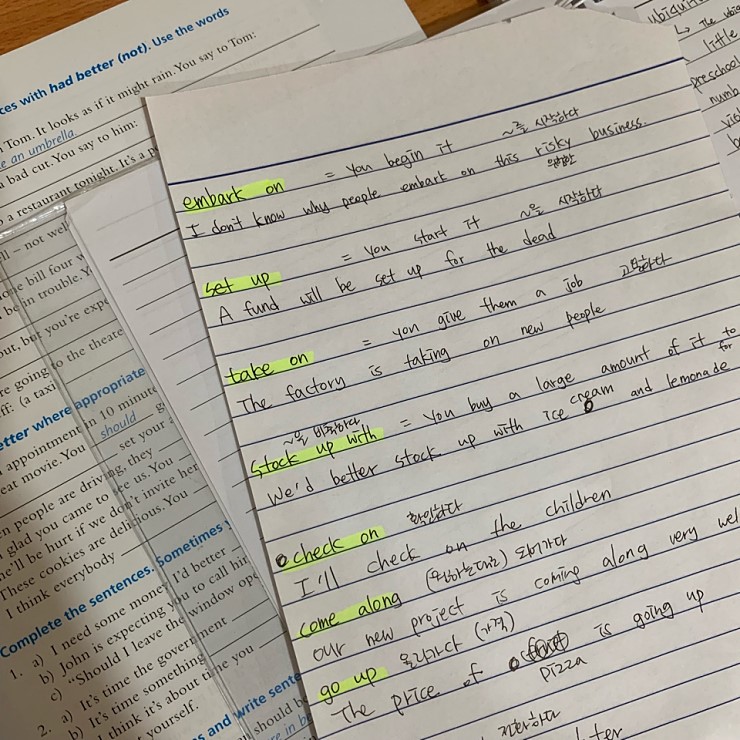 ces with had better (not). Use the words
Tom. It looks as if it might rain. You say to Tom:
e an umbrella.
bad cut. You say to him:
a restaurant tonight. It's a
be in trouble. Y
out, but you're expe
re going to the theatre
ff: (a taxi
etter where appropriate
appointment in 10 minute
eat movie. You should g
set your
en people are driving, they
glad you came to see us. You
he'll be hurt if we don't invite her
These cookies are delicious. You
I think everybody
Complete the sentences. Sometimes y
1. a) I need some money. I'd better
b) John is expecting you to call him
c) "Should I leave the window ope
2. a) It's time the government
b) It's time something
I think it's about time you
yourself.
s and write sente
should b
embark on = you begin it ~을 시작하다
I don't know why people embark on this risky business.
위험한
set up = you start it ~을 시작하다
A fund will be set up for the dead
take on = you give them a job 고용하다
The factory is taking on new people
~을 비축하다
stock up with = you buy a large amount of it to for
We'd better stock up with ice cream and lemonade
check on 확인하다
I'll check on the children
come along (원하는대로) 되어가다
our new project is coming along very wel
go up 올라가다 (가격)
The price of pizza is going up
ubiquit
↳ The ubiq
little
preschool
numb